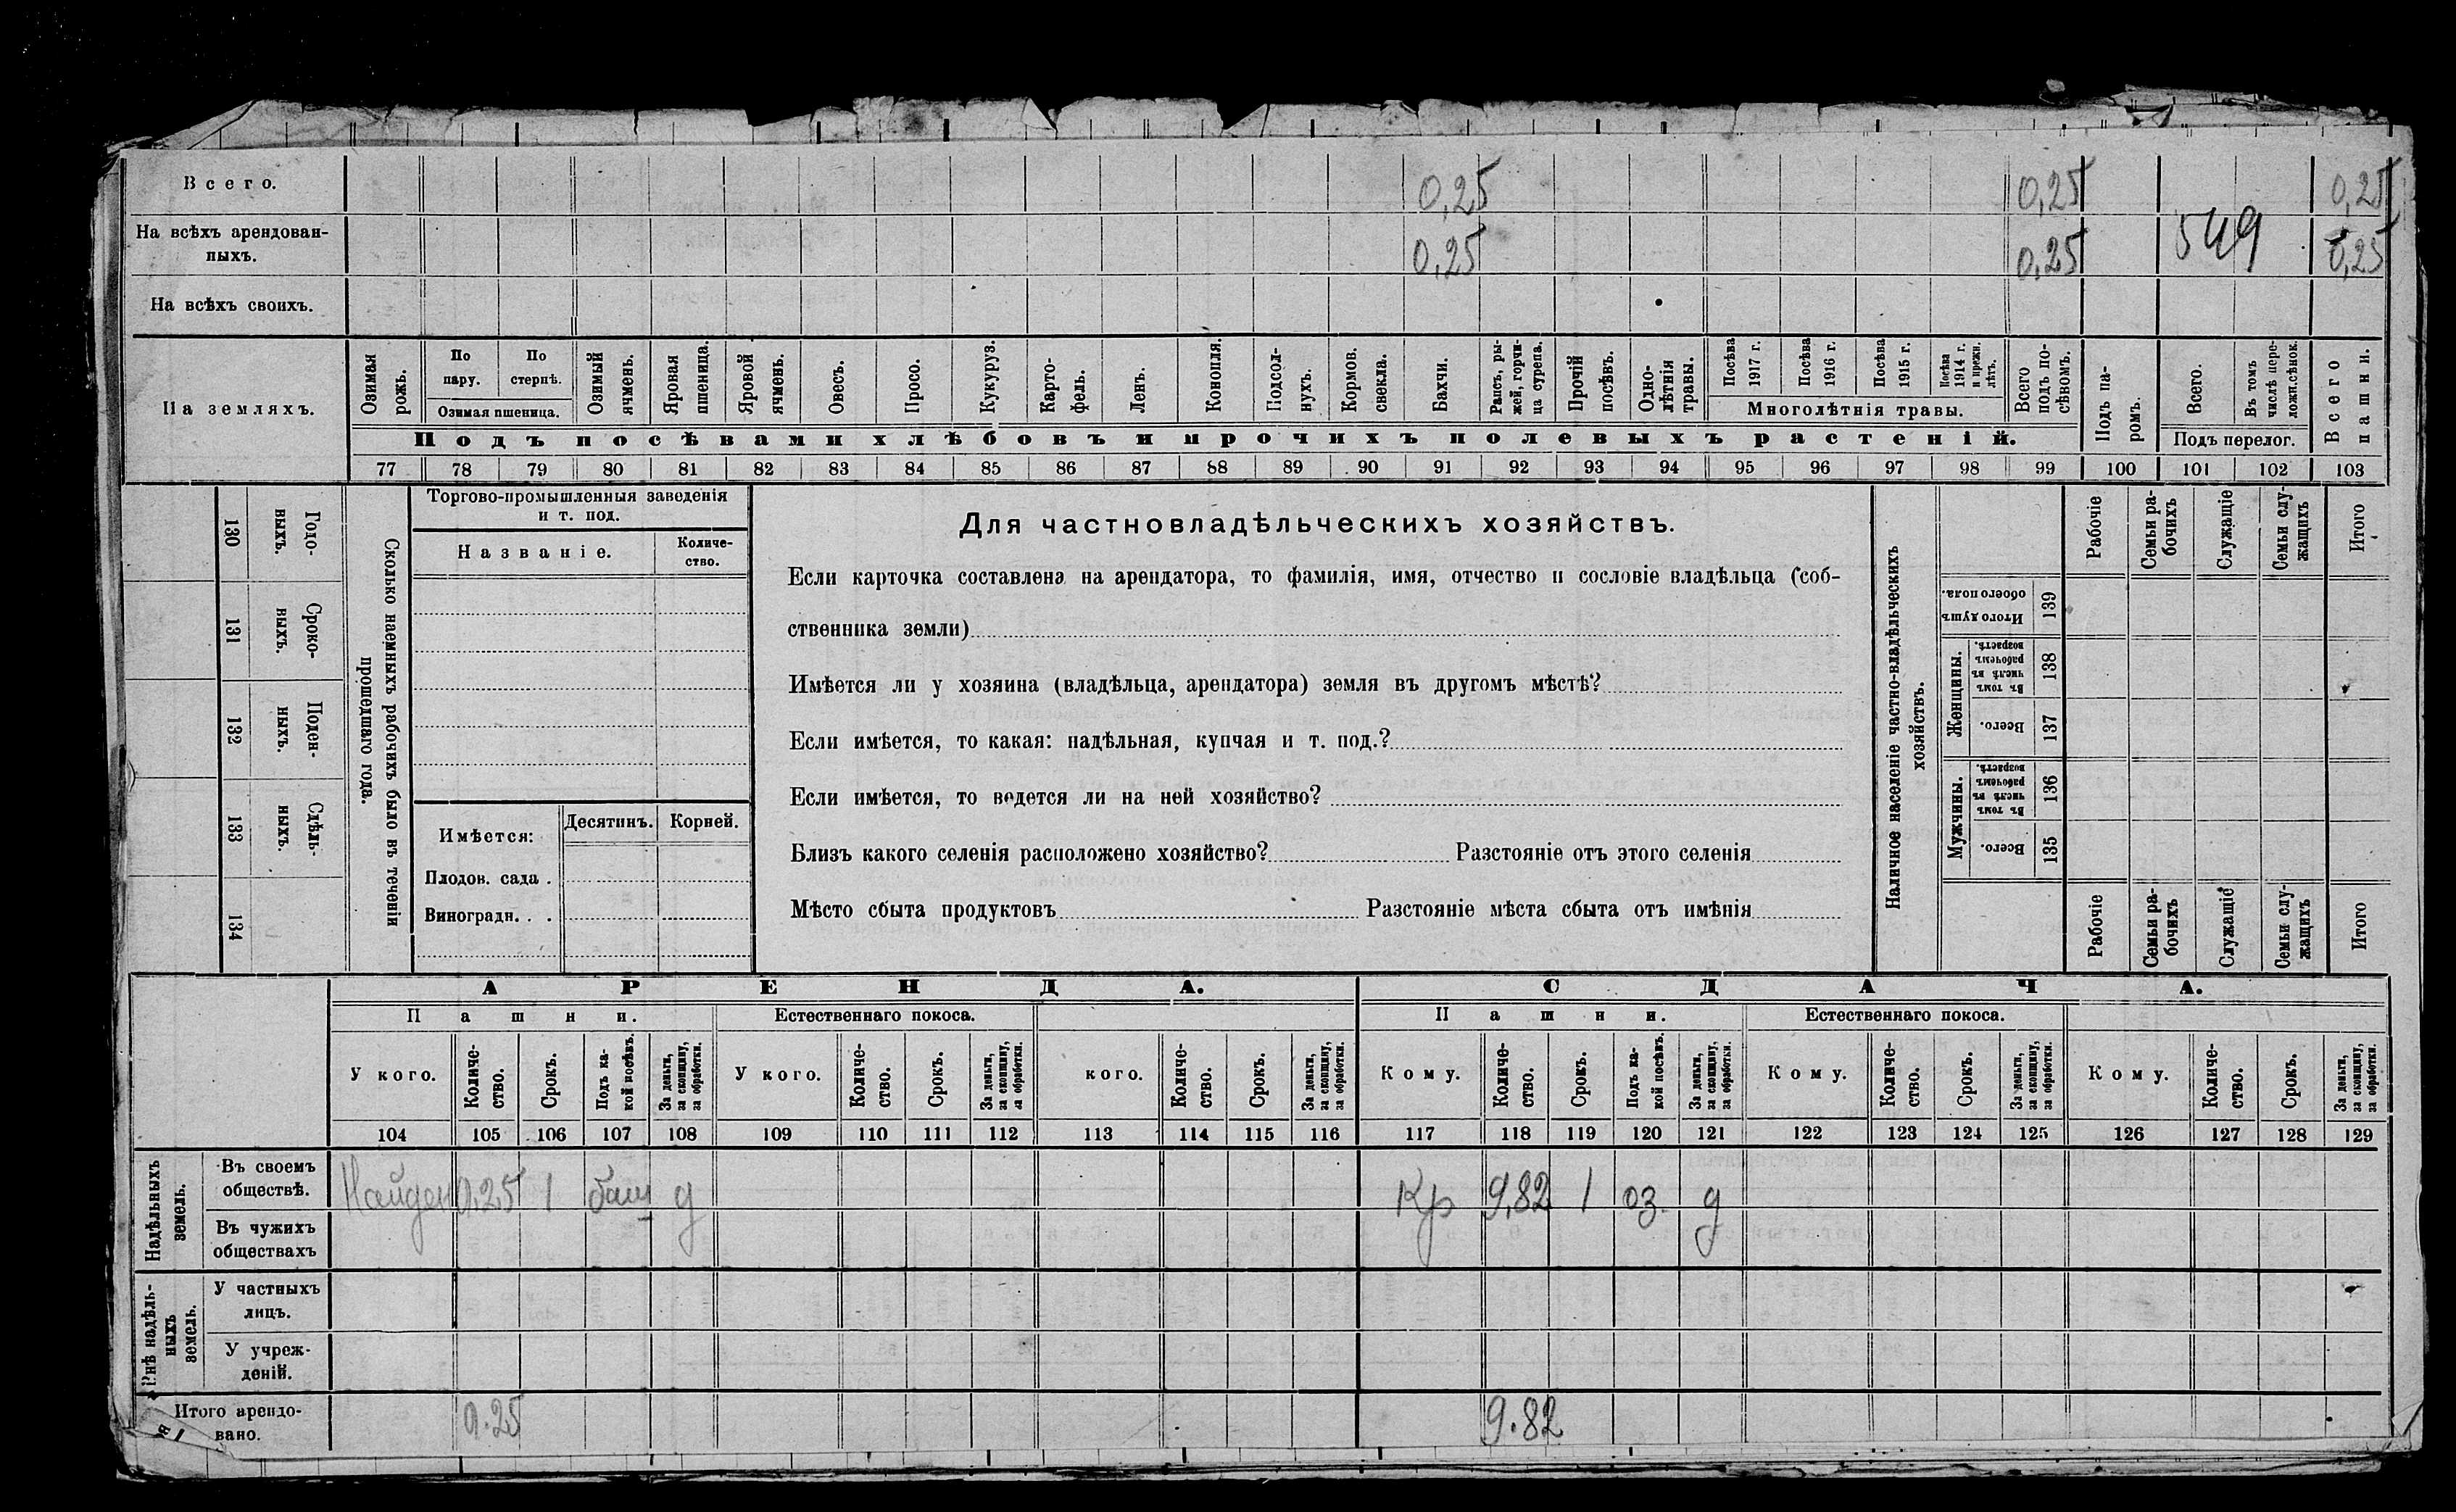 Всего. 0,25 0,25 0,25
На всѣхъ арендован-
ныхъ. 0,25 0,25 549 0,25
На всѣхъ своихъ.
На земляхъ.
Озимая рожь.
По пару.
По стернѣ.
Озимая пшеница.
Озимый ячмень.
Яровая пшеница.
Яровой ячмень.
Овесъ.
Просо.
Кукуруз.
Карто-
фель.
Ленъ.
Конопля.
Подсол-
нухъ.
Кормов. свекла.
Бахчи.
Рапсъ, ры-
жей, горчи-
ца сурепа.
Прочій посѣвъ.
Одно-
лѣтнія травы.
Посѣва 1917 г.
Посѣва 1916 г.
Посѣва 1915 г.
Посѣва 1914 г. и прежн. лѣтъ.
Многолѣтнія травы.
Всего подъ по-
сѣвомъ.
Подъ па-
ромъ.
Всего.
Въ томъ числѣ пере-
ложн.сѣнок.
Подъ перелог.
Всего пашни.
Подъ посѣвами хлѣбовъ и прочихъ полевыхъ растеній.
77 78 79 80 81 82 83 84 85 86 87 88 89 90 91 92 93 94 95 96 97 98 99 100 101 102 103
130 Годо-
выхъ.
131 Сроко-
выхъ.
132 Поден-
ныхъ.
133 Сдѣль-
ныхъ.
134
Сколько наемныхъ рабочихъ было въ теченіи
прошедшаго года.
Торгово-промышленныя заведенія
и т. под.
Названіе.
Количе-
ство.
Имѣется:
Десятинъ.
Корней.
Плодов. сада .
Виноградн. . .
Для частновладѣльческихъ хозяйствъ.
Если карточка составлена на арендатора, то фамилія, имя, отчество и сословіе владѣльца (соб-
ственника земли)
Имѣется ли у хозяина (владѣльца, арендатора) земля въ другомъ мѣстѣ?
Если имѣется, то какая: надѣльная, купчая и т. под.?
Если имѣется, то ведется ли на ней хозяйство?
Близъ какого селенія расположено хозяйство? Разстояніе отъ этого селенія
Мѣсто сбыта продуктовъ Разстояніе мѣста сбыта отъ имѣнія
Наличное населеніе частно-владѣльческихъ
хозяйствъ.
Рабочіе
Семьи ра-
бочихъ
Служащіе
Семьи слу-
жащихъ
Итого
Итого душъ обоего пола. 139
Женщины.
Въ томъ числѣ въ рабочемъ возрастѣ. 138
Всего. 137
Мужчины.
Въ томъ числѣ въ рабочемъ возрастѣ. 136
Всего. 135
Рабочіе
Семьи ра-
бочихъ
Служащіе
Семьи слу-
жащихъ
Итого
АРЕНДА.
СДАЧА.
Пашни.
Естественнаго покоса.
Пашни.
Естественнаго покоса.
У кого.
Количе-
ство.
Срокъ.
Подъ ка-
кой посѣвъ.
За деньги,
за скопщину,
за обработки.
У кого.
Количе-
ство.
Срокъ.
За деньги,
за скопщину,
за обработки.
кого.
Количе-
ство.
Срокъ.
За деньги,
за скопщину,
за обработки.
Кому.
Количе-
ство.
Срокъ.
Подъ ка-
кой посѣвъ.
За деньги,
за скопщину,
за обработки.
Кому.
Количе-
ство.
Срокъ.
За деньги,
за скопщину,
за обработки.
Кому.
Количе-
ство.
Срокъ.
За деньги,
за скопщину,
за обработки.
104 105 106 107 108 109 110 111 112 113 114 115 116 117 118 119 120 121 122 123 124 125 126 127 128 129
Надѣльныхъ
земель.
Въ своемъ
обществѣ. Найден 0,25 1 баш д Кр 9,82 1 оз. д
Въ чужихъ
обществахъ
Внѣ надѣль-
ныхъ
земель.
У частныхъ
лицъ.
У учреж-
деній.
Итого арендо-
вано. 0.25 9.82